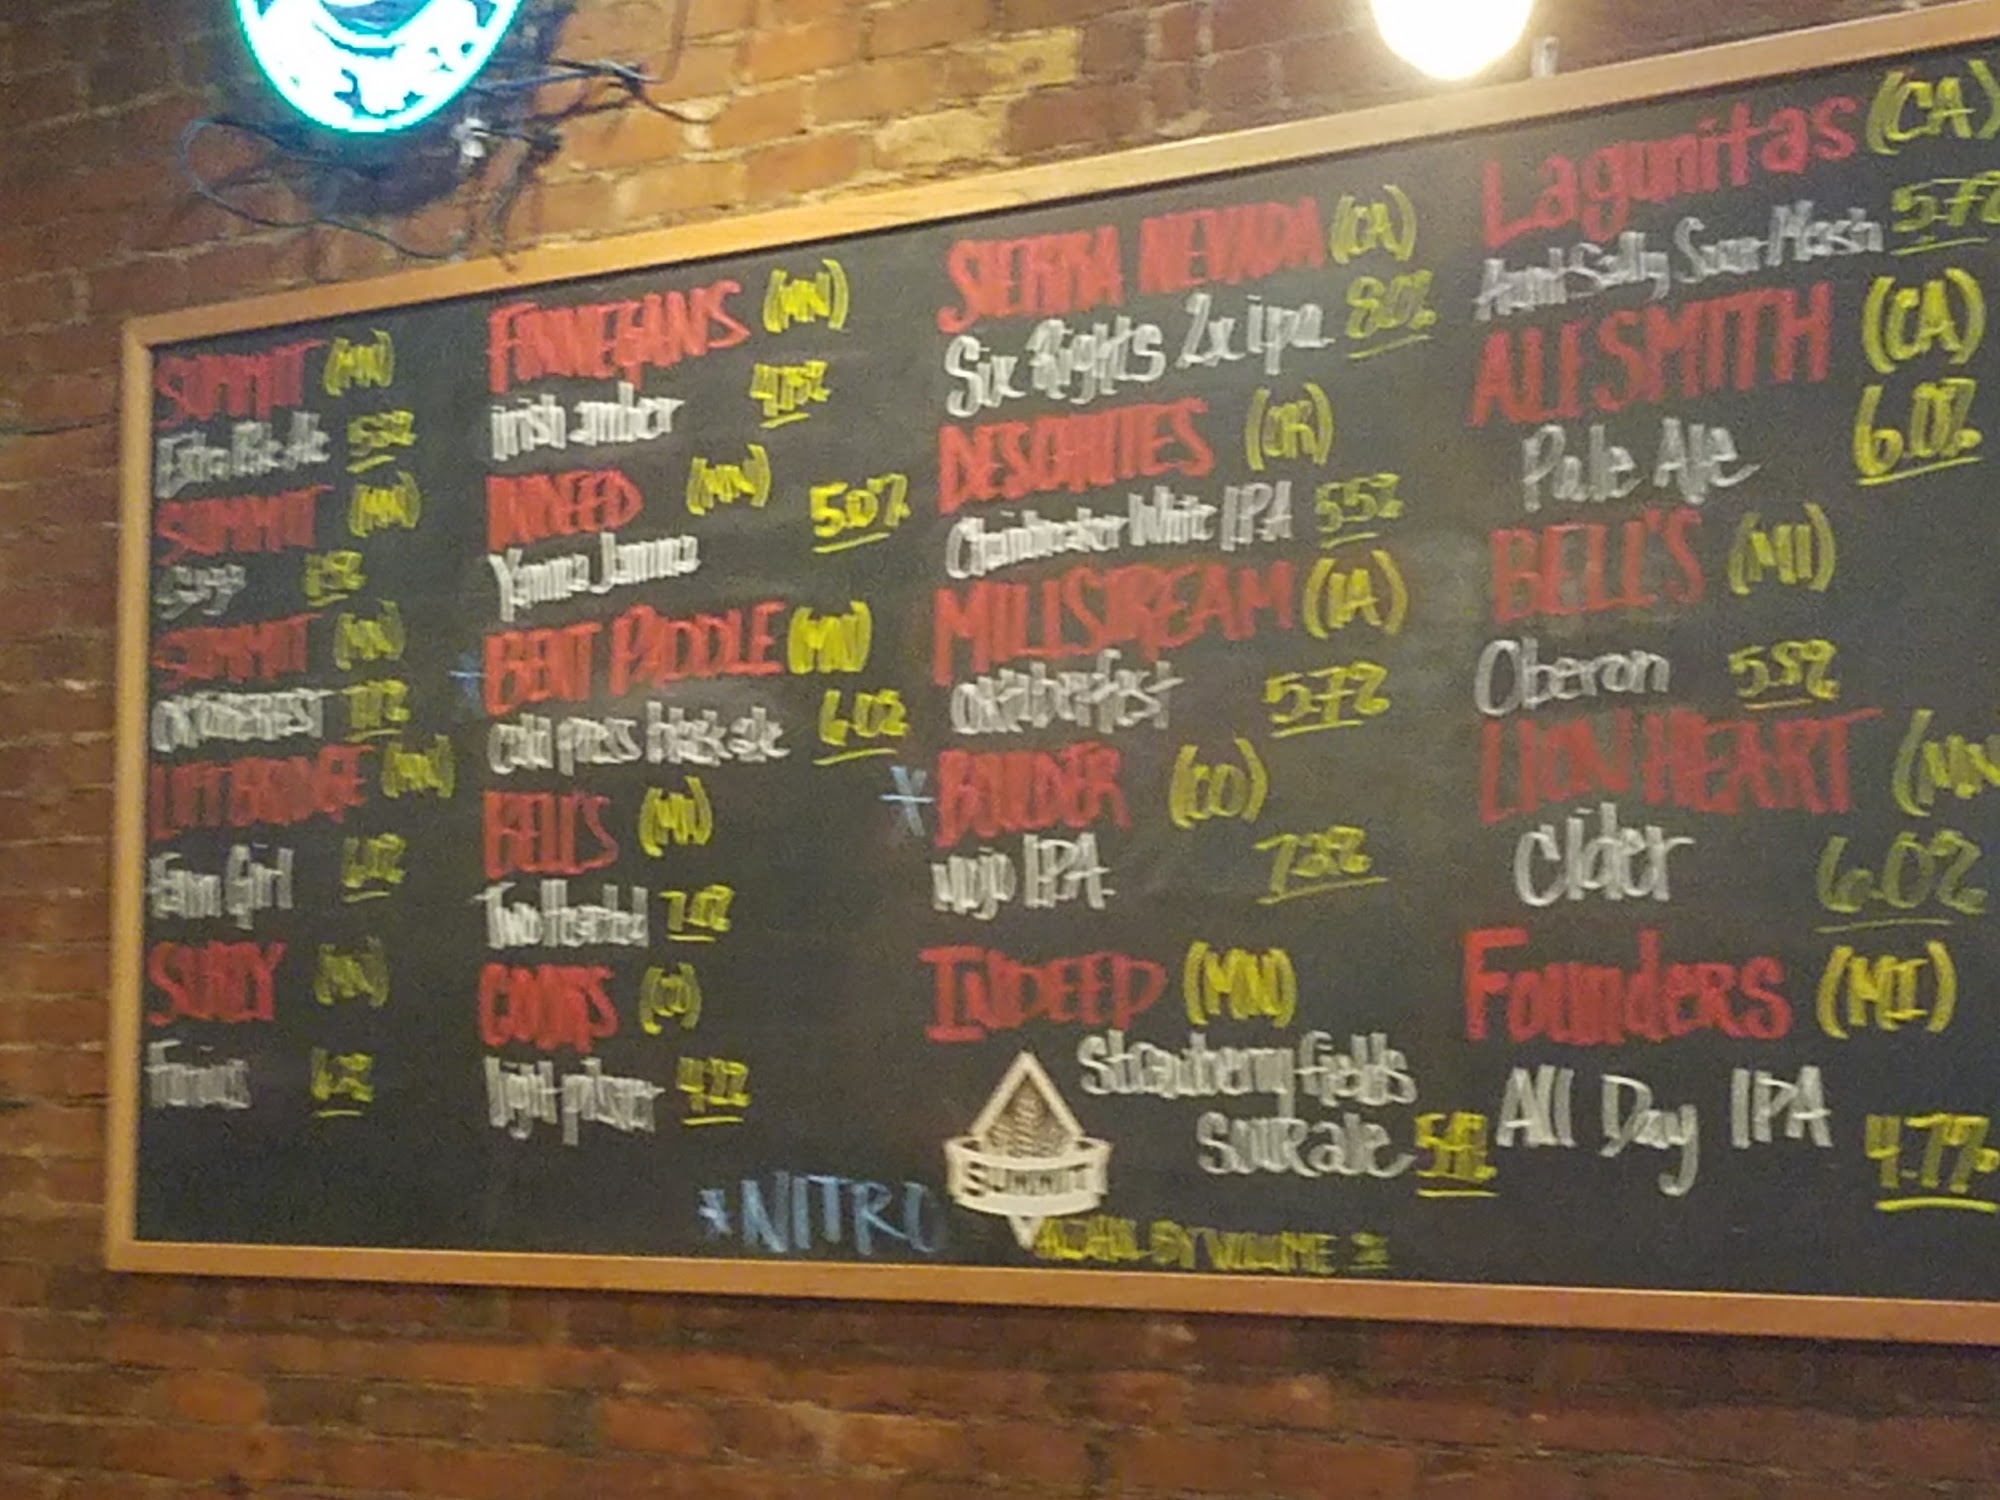 SUMMIT (MN)
Extra Pale Ale
SUMMIT (MN)
Saga
SUMMIT (MN)
OKTOBERFEST
LIFT BRIDGE (MN)
Farm Girl
SURLY (MN)
Furious
FINNEGANS (MN)
irish amber
INDEED (MN)
5.0%
BENT PADDLE (MN)
cold press black ale 6.0%
BELL'S (MI)
Two Hearted 7.0%
COORS (CO)
light pilsner 4.2%
*NITRO
SIERRA NEVADA (CA)
Six Rights 2x ipa 8.0%
DESCHUTES (OR)
Chainbreaker White IPA 5.5%
MILLSTREAM (IA)
oktoberfest 5.7%
* BOULDER (CO)
Mojo IPA 7.2%
INDEED (MN)
Strawberry Fields
Sour ale
SUMMIT
ALCOHOL BY VOLUME %
Lagunitas (CA)
Aunt Sally Sour Mash 5.7%
ALESMITH (CA)
Pale Ale 6.0%
BELL'S (MI)
Oberon
LION HEART (MN
Cider 6.0%
Founders (MI)
All Day IPA 4.7%